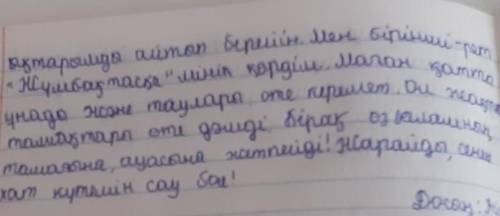 ақтарымда айтып берейін. Мен бірінші-рет
"Жұмбақтасқа" мініп көрдім. Маған қатты
ұнады және таулары өте керемет. Ол жақта
тамақтары өте дәмді, бірақ өз
тамағына, ауасына жетпейді! Жарайды, сенен
хат күтемін сау бол!
Досың: